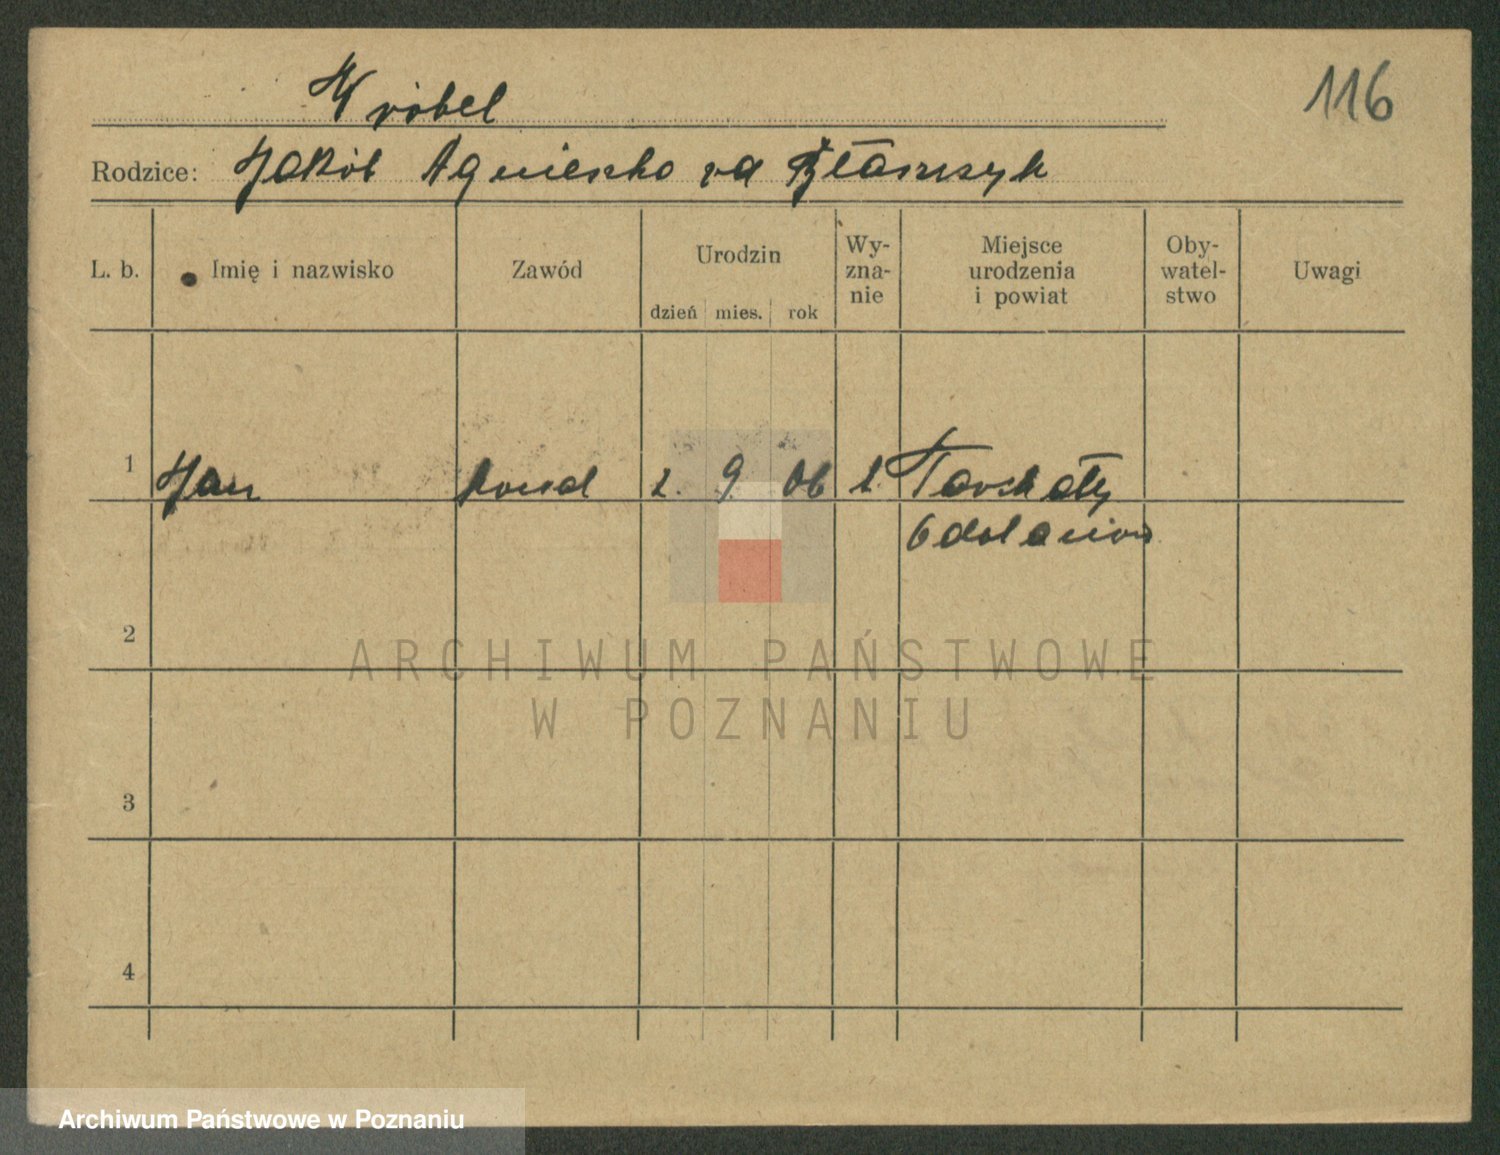 116
Wróbel
Rodzice: Jakób Agnieszka zd Błaszczyk
L. b. Imię i nazwisko Zawód Urodzin dzień mies. rok Wy-zna-nie Miejsce urodzenia i powiat Oby-watel-stwo Uwagi
1 Jan 2. 9. 06 Tarchały
Odolanów
2
3
4
ARCHIWUM PAŃSTWOWE
W POZNANIU
Archiwum Państwowe w Poznaniu